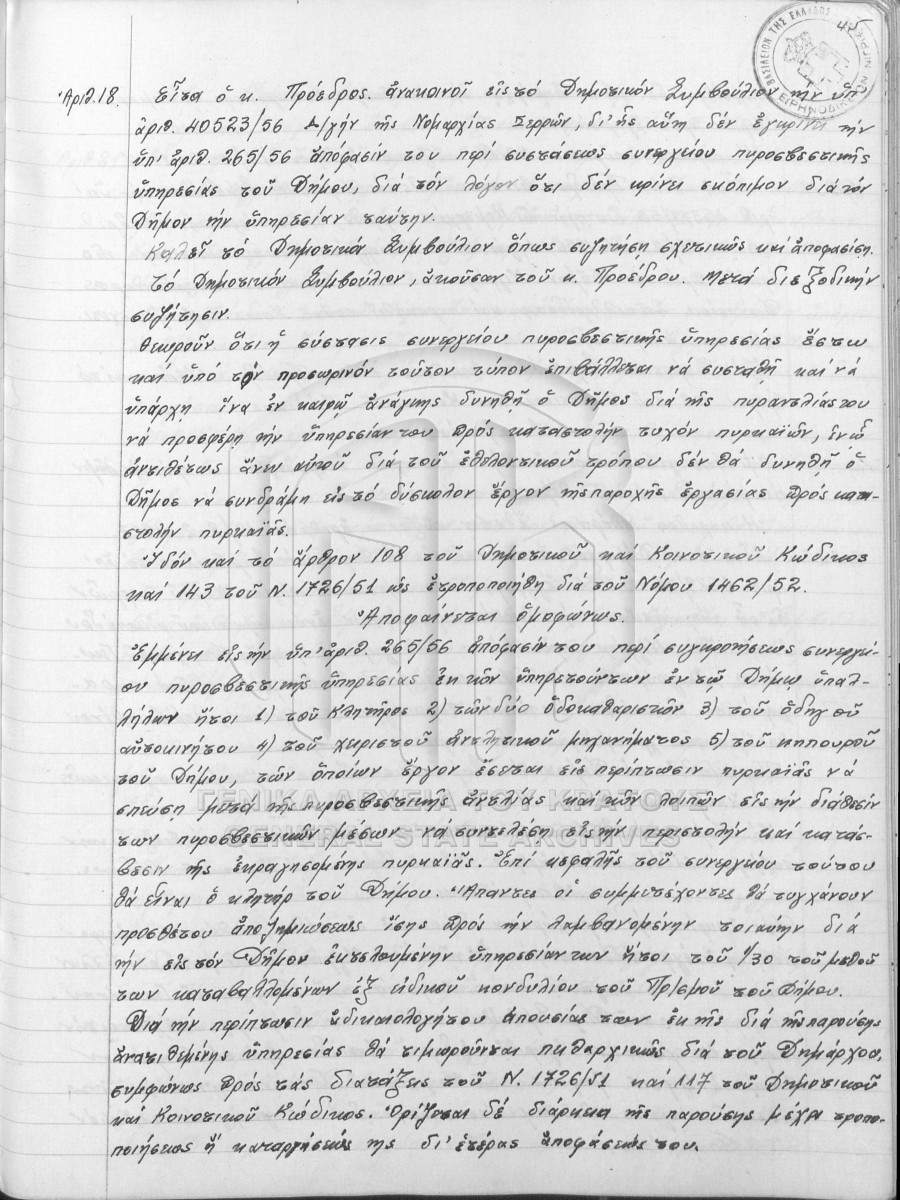 45
ΒΑΣΙΛΕΙΟΝ ΤΗΣ ΕΛΛΑΔΟΣ
ΕΙΡΗΝΟΔΙΚΕΙΟΝ
Ἀριθ. 18. Εἶτα ὁ κ. Πρόεδρος ἀνακοινοῖ εἰς τό Δημοτικόν Συμβούλιον τήν ὑπ'
ἀριθ. 40523/56 Δ/γήν τῆς Νομαρχίας Σερρῶν, δι' ἧς αὕτη δέν ἐγκρίνει τήν
ὑπ' ἀριθ. 265/56 ἀπόφασίν του περί συστάσεως συνεργείου πυροσβεστικῆς
ὑπηρεσίας τοῦ Δήμου, διά τόν λόγον ὅτι δέν κρίνει σκόπιμον διά τόν
Δῆμον τήν ὑπηρεσίαν ταύτην.
Καλεῖ τό Δημοτικόν Συμβούλιον ὅπως συζητήσῃ σχετικῶς καί ἀποφασίσῃ.
Τό Δημοτικόν Συμβούλιον, ἀκοῦσαν τοῦ κ. Προέδρου. Μετά διεξοδικήν
συζήτησιν.
Θεωροῦν ὅτι ἡ σύστασις συνεργείου πυροσβεστικῆς ὑπηρεσίας ἔστω
καί ὑπό τόν προσωρινόν τοῦτον τύπον ἐπιβάλλεται νά συσταθῇ καί νά
ὑπάρχῃ ἵνα ἐν καιρῷ ἀνάγκης δυνηθῇ ὁ Δῆμος διά τῆς πυραντλίας του
νά προσφέρῃ τήν ὑπηρεσίαν του πρός καταστολήν τυχόν πυρκαϊῶν, ἐνῷ
ἀντιθέτως ἄνευ αὐτοῦ διά τοῦ ἐθελοντικοῦ τρόπου δέν θά δυνηθῇ ὁ
Δῆμος νά συνδράμῃ εἰς τό δύσκολον ἔργον τῆς παροχῆς ἐργασίας πρός κατα-
στολήν πυρκαϊᾶς.
Ἰδόν καί τό ἄρθρον 108 τοῦ Δημοτικοῦ καί Κοινοτικοῦ Κώδικος
καί 143 τοῦ Ν. 1726/51 ὡς ἐτροποποιήθη διά τοῦ Νόμου 1462/52.
Ἀποφαίνεται ὁμοφώνως.
Ἐμμένει εἰς τήν ὑπ' ἀριθ. 265/56 ἀπόφασίν του περί συγκροτήσεως συνεργεί-
ου πυροσβεστικῆς ὑπηρεσίας ἐκ τῶν ὑπηρετούντων ἐν τῷ Δήμῳ ὑπαλ-
λήλων ἤτοι 1) τοῦ Κλητῆρος 2) τῶν δύο ὁδοκαθαριστῶν 3) τοῦ ὁδηγοῦ
αὐτοκινήτου 4) τοῦ χειριστοῦ ἀντλητικοῦ μηχανήματος 5) τοῦ κηπουροῦ
τοῦ Δήμου, τῶν ὁποίων ἔργον ἔσεται εἰς περίπτωσιν πυρκαϊᾶς νά
σπεύσῃ μετά τῆς πυροσβεστικῆς ἀντλίας καί τῶν λοιπῶν εἰς τήν διάθεσίν
ΓΕΝΙΚΑ ΑΡΧΕΙΑ ΤΟΥ ΚΡΑΤΟΥΣ
των πυροσβεστικῶν μέσων νά συντελέσῃ εἰς τήν περιστολήν καί κατάσ-
GENERAL STATE ARCHIVES
βεσιν τῆς ἐκραγησομένης πυρκαϊᾶς. Ἐπί κεφαλῆς τοῦ συνεργείου τούτου
θά εἶναι ὁ κλητήρ τοῦ Δήμου. Ἅπαντες οἱ συμμετέχοντες θά τυγχάνουν
προσθέτου ἀποζημιώσεως ἴσης πρός τήν λαμβανομένην τοιαύτην διά
τήν εἰς τόν Δῆμον ἐκτελουμένην ὑπηρεσίαν των ἤτοι τοῦ 1/30 τοῦ μισθοῦ
των καταβαλλομένων ἐξ εἰδικοῦ κονδυλίου τοῦ Πρ/σμοῦ τοῦ Δήμου.
Διά τήν περίπτωσιν ἀδικαιολογήτου ἀπουσίας των ἐκ τῆς διά τῆς παρούσης
ἀνατιθεμένης ὑπηρεσίας θά τιμωροῦνται πειθαρχικῶς διά τοῦ Δημάρχου,
συμφώνως πρός τάς διατάξεις τοῦ Ν. 1726/51 καί 117 τοῦ Δημοτικοῦ
καί Κοινοτικοῦ Κώδικος. Ὁρίζεται δέ διάρκεια τῆς παρούσης μέχρι τροπο-
ποιήσεως ἤ καταργήσεώς της δι' ἑτέρας ἀποφάσεώς του.